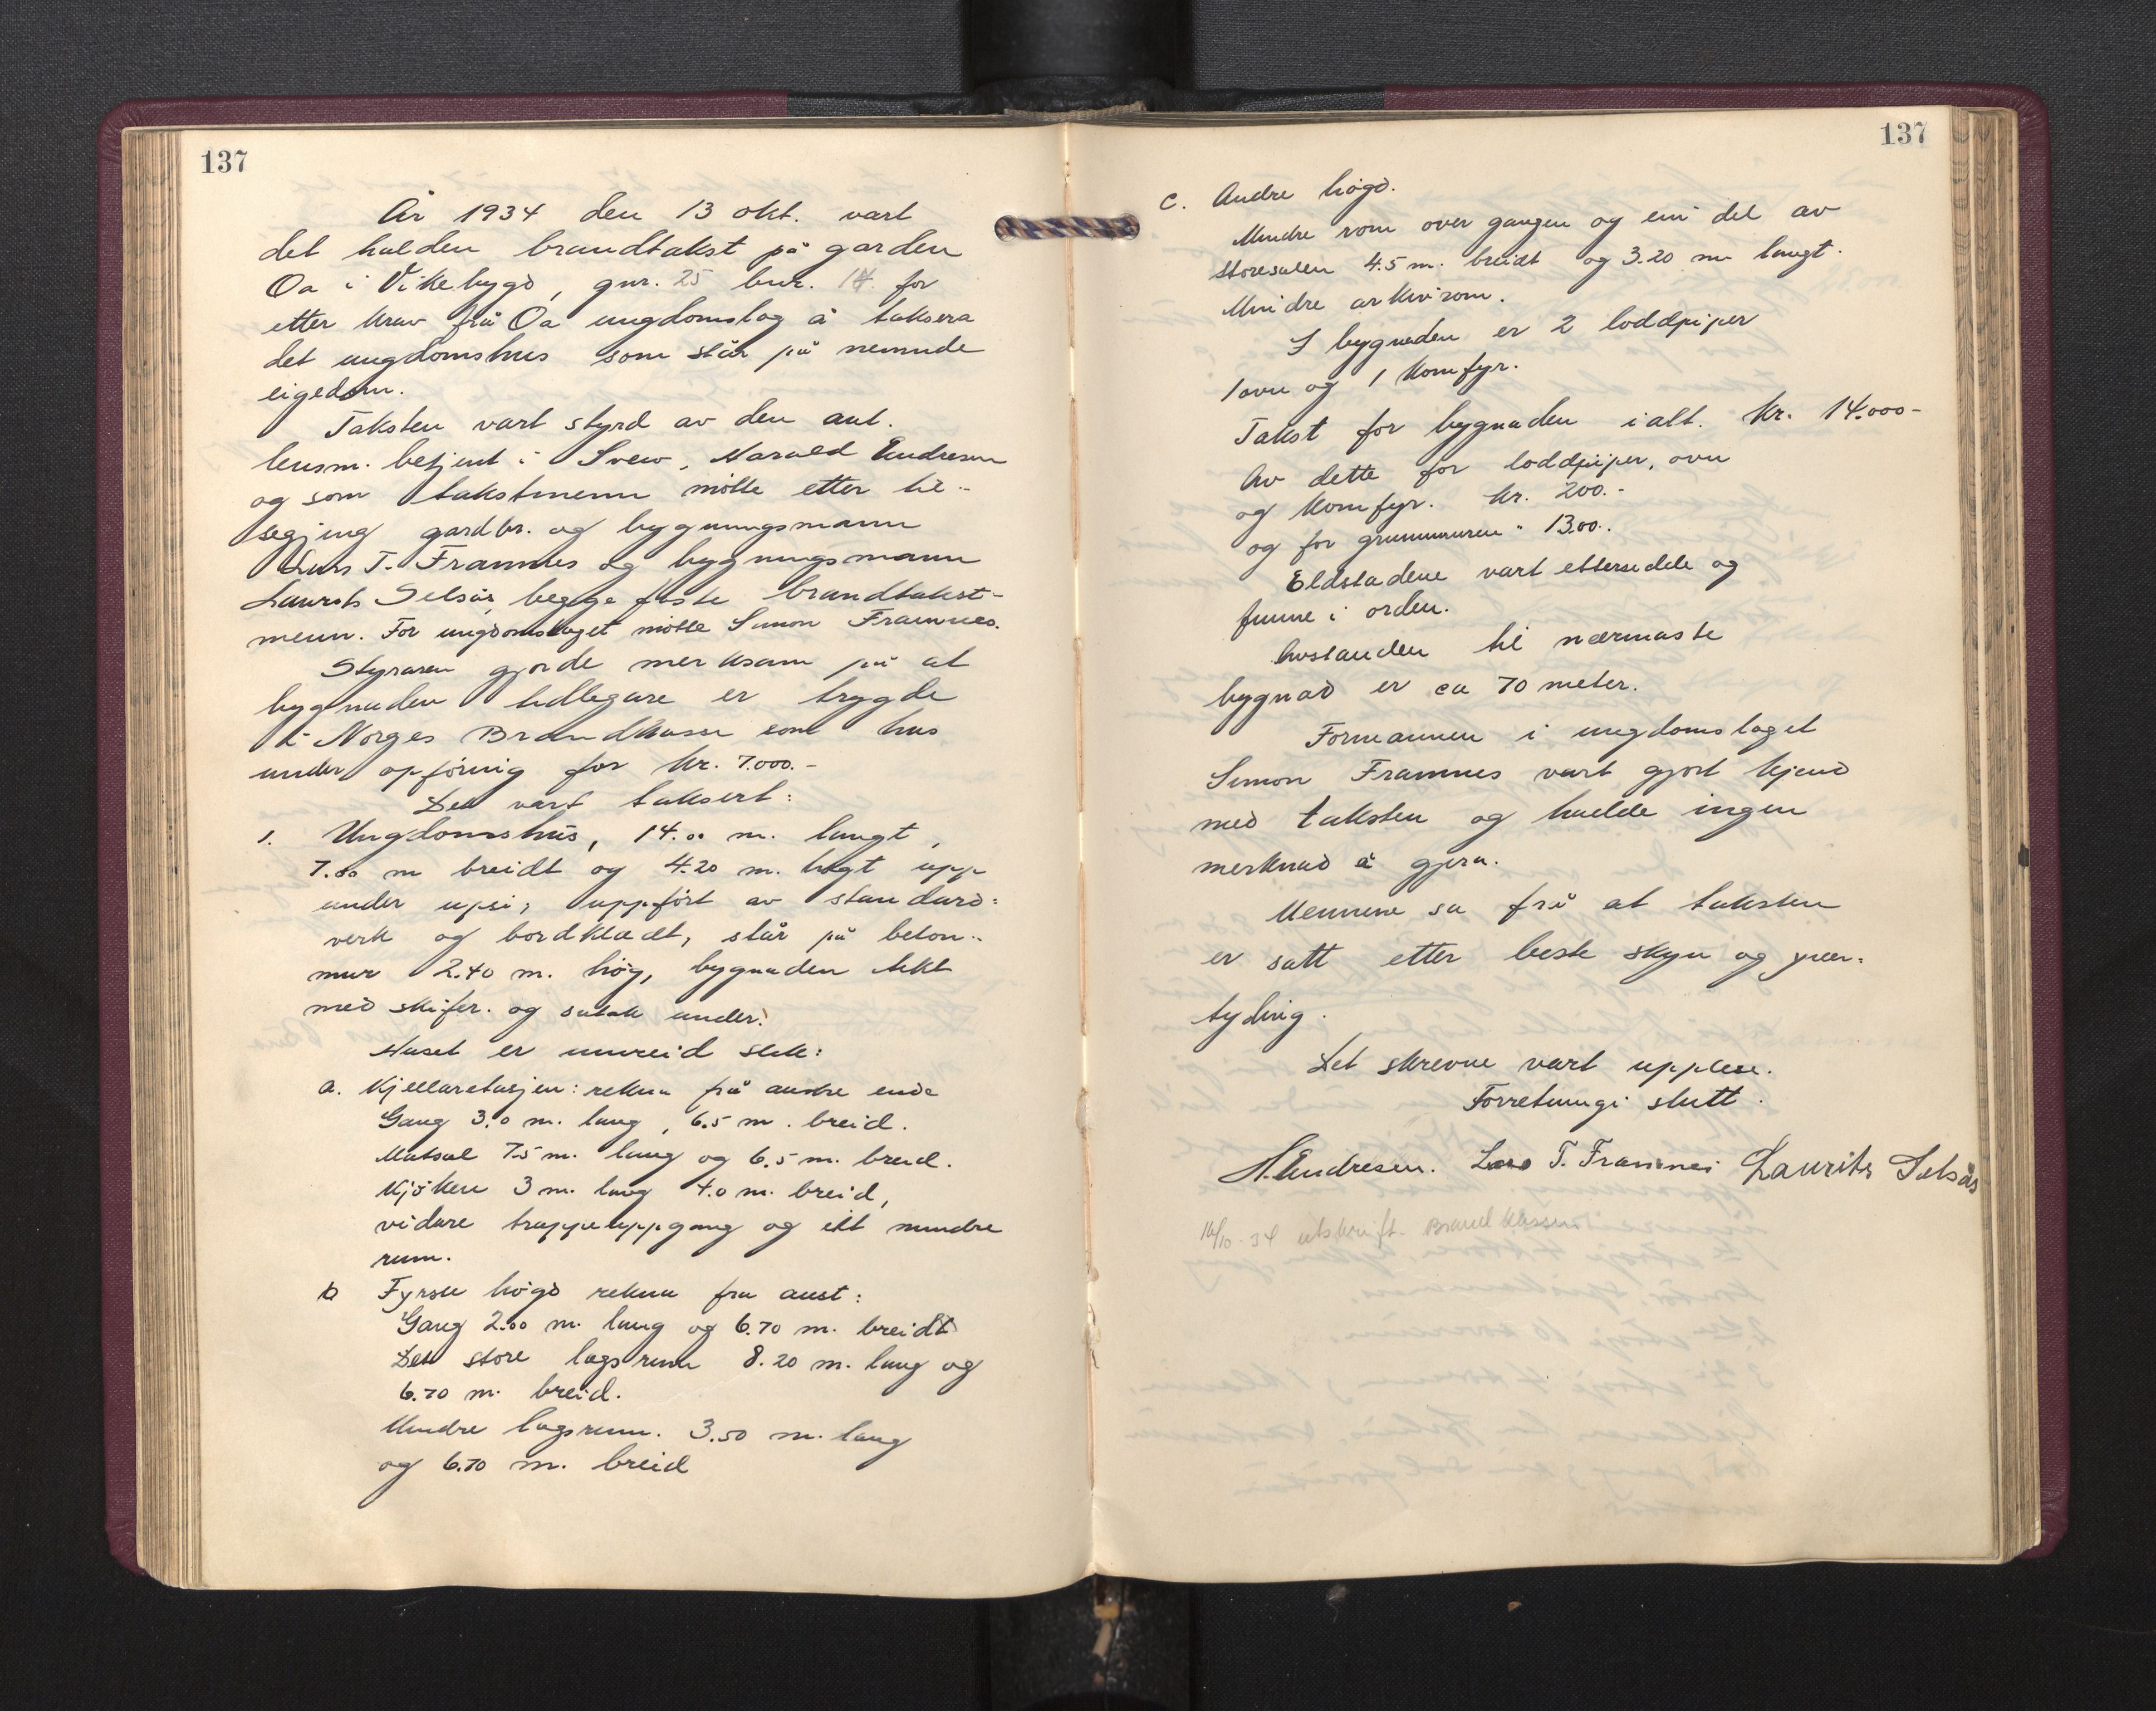 137
År 1934 den 13 okt. vart
det halden brandtakst på garden
Oa i Vikebygd, gnr. 25 bnr. 14 for
etter krav frå Oa ungdomslag å taksera
det ungdomshus som står på nemnde
eigedom.
Taksten vart styrd av den aut.
lensm. betjent i Sveio, Harald Endresen
og som takstmenn møtte etter til-
segjing gardbr. og bygningsmann
Lars T. Framnes og bygningsmann
Laurits Selsås, begge faste brandtakst-
menn. For ungdomslaget møtte Simon Framnes.
Styraren gjorde merksam på at
bygnaden tidlegare er trygde
i Norges Brandkasse som hus
under opföring for kr. 7.000.-
Det vart taksert:
1. Ungdomshus, 14.00 m. langt,
7.00 m breidt og 4.20 m. høgt upp
under upsi, uppført av standard-
verk og bordklædt, står på beton-
mur 2.40 m. høg, bygnaden tekt
med skifer. og sutak under.
Huset er innreid slik:
a. Kjellaretasjen: rekna frå austre ende
Gang 3.0 m. lang, 6.5 m. breid.
Matsal 7.5 m. lang og 6.5 m. breid.
Kjøken 3 m. lang 4.0 m. breid,
vidare trappeuppgang og eitt mindre
rum.
b Fyrste høgd rekna fra aust:
Gang 2.00 m. lang og 6.70 m. breidt
Det store lagsrum 8.20 m. lang og
6.70 m. breid.
Mindre lagsrum. 3.50 m. lang
og 6.70 m. breid
137
c. Andre høgd.
Mindre rom over gangen og ein del av
storesalen 4.5 m. breidt og 3.20 m langt.
Mindre arkivrom.
I bygnaden er 2 loddpiper
1 ovn og 1 komfyr.
Takst for bygnaden i alt. kr. 14.000-
Av dette for loddpiper, ovn
og komfyr. kr. 200.-
og for grunnmuren " 1300.-
Eldstadene vart ettersedde og
funne i orden.
Avstanden til nærmaste
bygnad er ca 70 meter.
Formannen i ungdomslaget
Simon Framnes vart gjort kjend
med taksten og hadde ingen
merknad å gjera.
Mennene sa frå at taksten
er satt etter beste skyn og yver-
tyding.
Det skrevne vart upplese.
Forretningi slutt.
H. Endresen. Lars T. Framnes Laurits Selsås
16/10-34 utskrift. Brandkassen